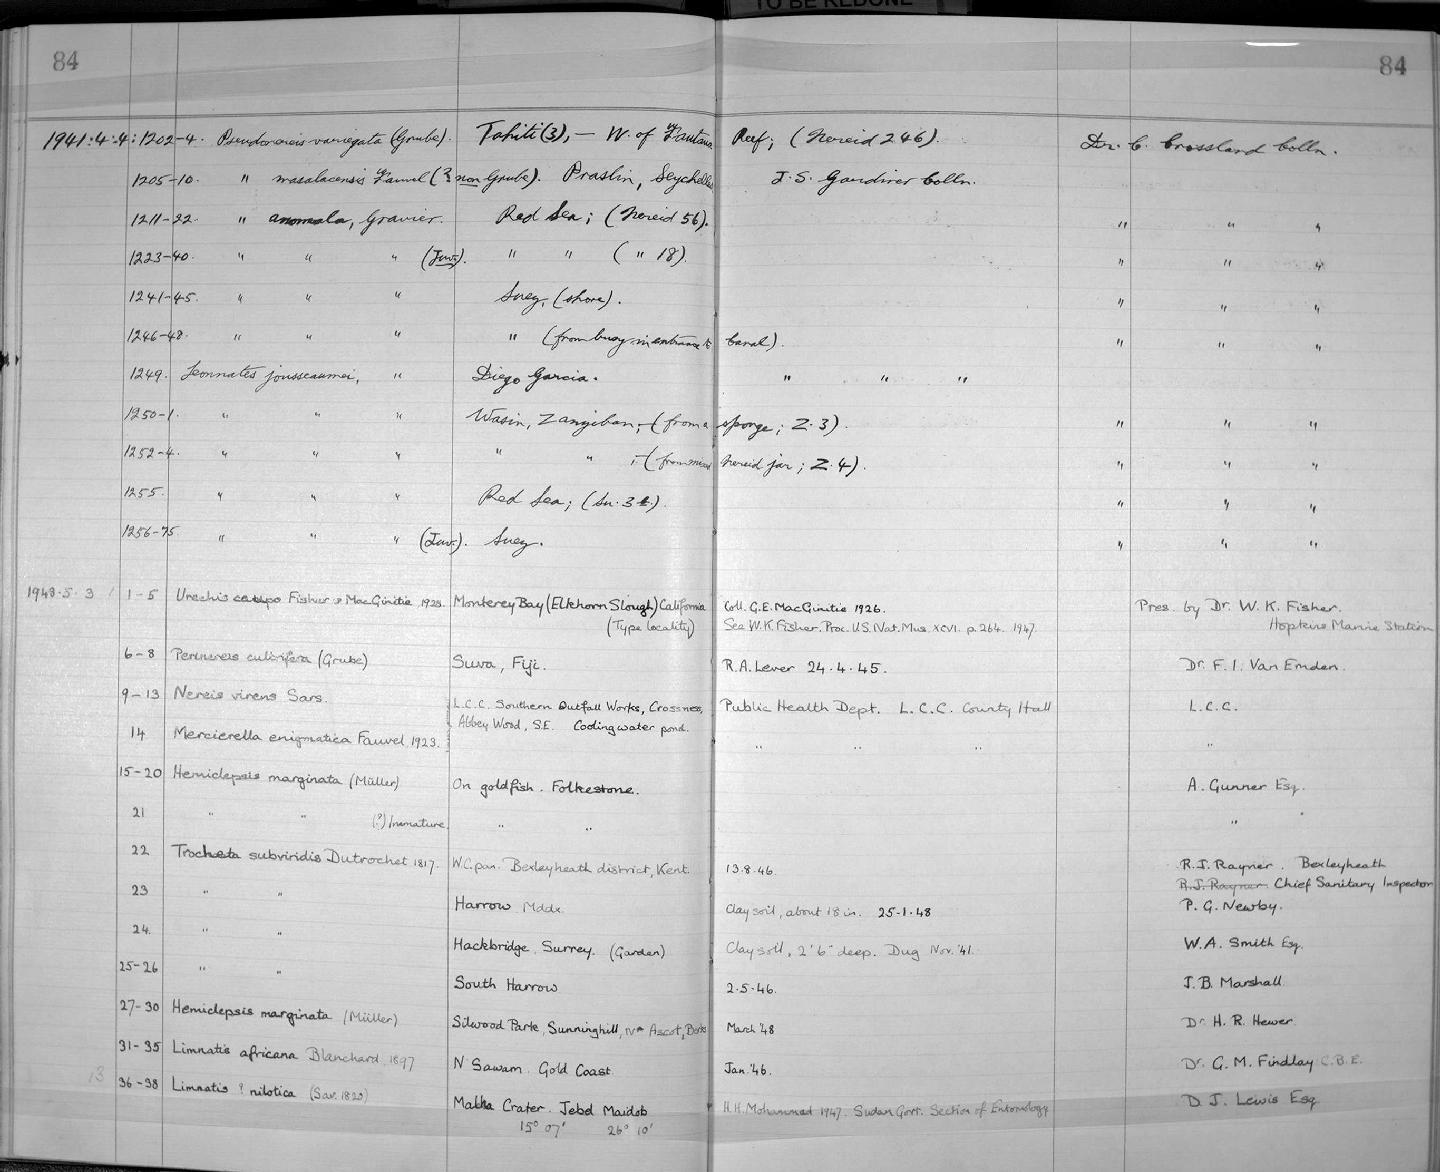 TO BE REDONE
84 84
1941:4:4:1202-4. Pseudonereis variegata (Grube). Tahiti (3), — W. of Fautaua Reef; (Nereid 246). Dr. C. Crossland Colln.
1205-10. " masalacensis Fauvel (? non Grube). Praslin, Seychelles J. S. Gardiner Colln.
1211-22. " anomala, Gravier. Red Sea; (Nereid 56). " " "
1223-40. " " " (Juv.). " " ( " 18). " " "
1241-45. " " " Suez, (shore). " " "
1246-48. " " " " (from buoy in entrance to Canal). " " "
1249. Leonnates jousseaumei, " Diego Garcia. " " "
1250-1. " " " Wasin, Zanzibar, — (from a sponge; Z.3). " " "
1252-4. " " " " " , — (from mixed Nereid jar; Z.4). " " "
1255. " " " Red Sea; " " "
1256-75 " " " (Juv.). Suez. " " "
1948.5.3 / 1-5 Urechis caupo Fisher & MacGinitie 1928. Monterey Bay (Elkhorn Slough) California Coll. G.E. MacGinitie 1926. Pres. by Dr. W. K. Fisher.
(Type locality) See W.K. Fisher. Proc. U.S. Nat. Mus. XCVI. p.264. 1947. Hopkins Marine Station
6-8 Perinereis cultrifera (Grube) Suva, Fiji. R.A. Lever 24.4.45. Dr. F. I. Van Emden.
9-13 Nereis virens Sars. L.C.C. Southern Outfall Works, Crossness, Public Health Dept. L.C.C. County Hall L.C.C.
Abbey Wood, S.E. Cooling water pond.
14 Mercierella enigmatica Fauvel 1923. " " " "
15-20 Hemiclepsis marginata (Müller) On goldfish. Folkestone. A. Gunner Esq.
21 " " (?) Immature. " " " "
22 Trocheta subviridis Dutrochet 1817. W.C. pan. Bexleyheath district, Kent. 13.8.46. R.J. Rayner. Bexleyheath
R.J. Rayner Chief Sanitary Inspector
23 " " Harrow Middx. Clay soil, about 18 in. 25-1-48 P. G. Newby.
24. " " Hackbridge. Surrey. (Garden) Clay soil, 2' 6" deep. Dug Nov. '41. W.A. Smith Esq.
25-26 " " South Harrow 2.5.46. J.B. Marshall.
27-30 Hemiclepsis marginata (Müller) Silwood Park, Sunninghill, nr Ascot, Berks March '48 Dr H. R. Hewer
31-35 Limnatis africana Blanchard. 1897 N Sawam. Gold Coast. Jan. '46. Dr G. M. Findlay C.B.E.
13 36-38 Limnatis ? nilotica (Sav. 1820) Malha Crater. Jebel Maidob H.H. Mohammed 1947. Sudan Govt. Section of Entomology D. J. Lewis Esq
15° 07' 26° 10'